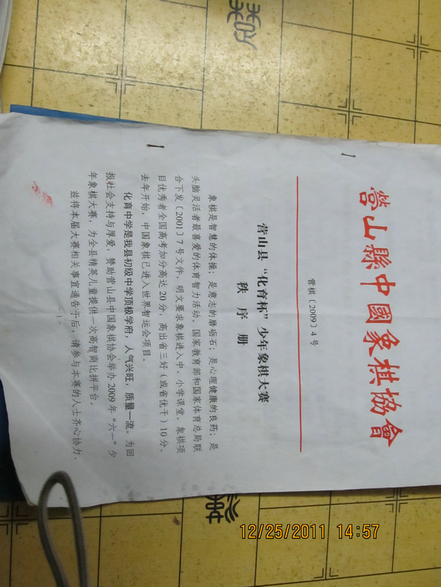 营山縣中國象棋協會
营棋〔2009〕4号
营山县“化育杯”少年象棋大赛
秩序册
象棋是智慧的体操；是意志的磨砺石；是心理健康的良药；是
头脑灵活者最喜爱的体育智力活动。国家教育部和国家体育总局联
合下发〔2001〕7号文件，明文要求象棋进入中、小学课堂。象棋项
目优秀者全国高考加分高达20分，高出省三好（或省优干）10分。
去年开始，中国象棋已进入世界智运会项目。
化育中学是我县初级中学顶极学府，人气兴旺，质量一流。为回
报社会支持与厚爱，赞助营山县中国象棋协会举办2009年“六一”少
年象棋大赛，为全县精英儿童提供一次高智商比拼平台。
兹将本届大赛相关事宜通告于后，请参与本赛的人士齐心协力，
12/25/2011 14:57